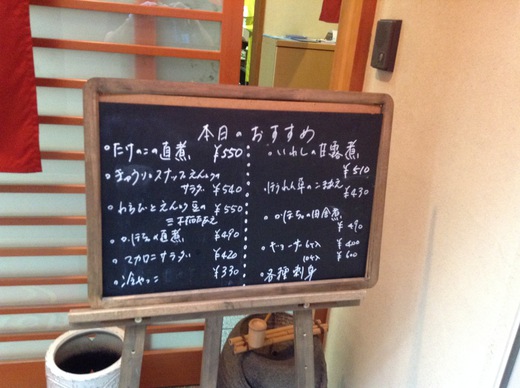 本日のおすすめ
たけのこの直煮 ¥550
きゅうりとスナップえんどうの
サラダ ¥540
わらびとえんどう豆の ¥550
かぼちゃの直煮 ¥490
マカロニサラダ ¥420
冷やっこ ¥330
いわしの甘露煮
¥510
ほうれん草のごまあえ
¥430
かぼちゃの田舎煮
¥490
¥400
¥600
各種刺身